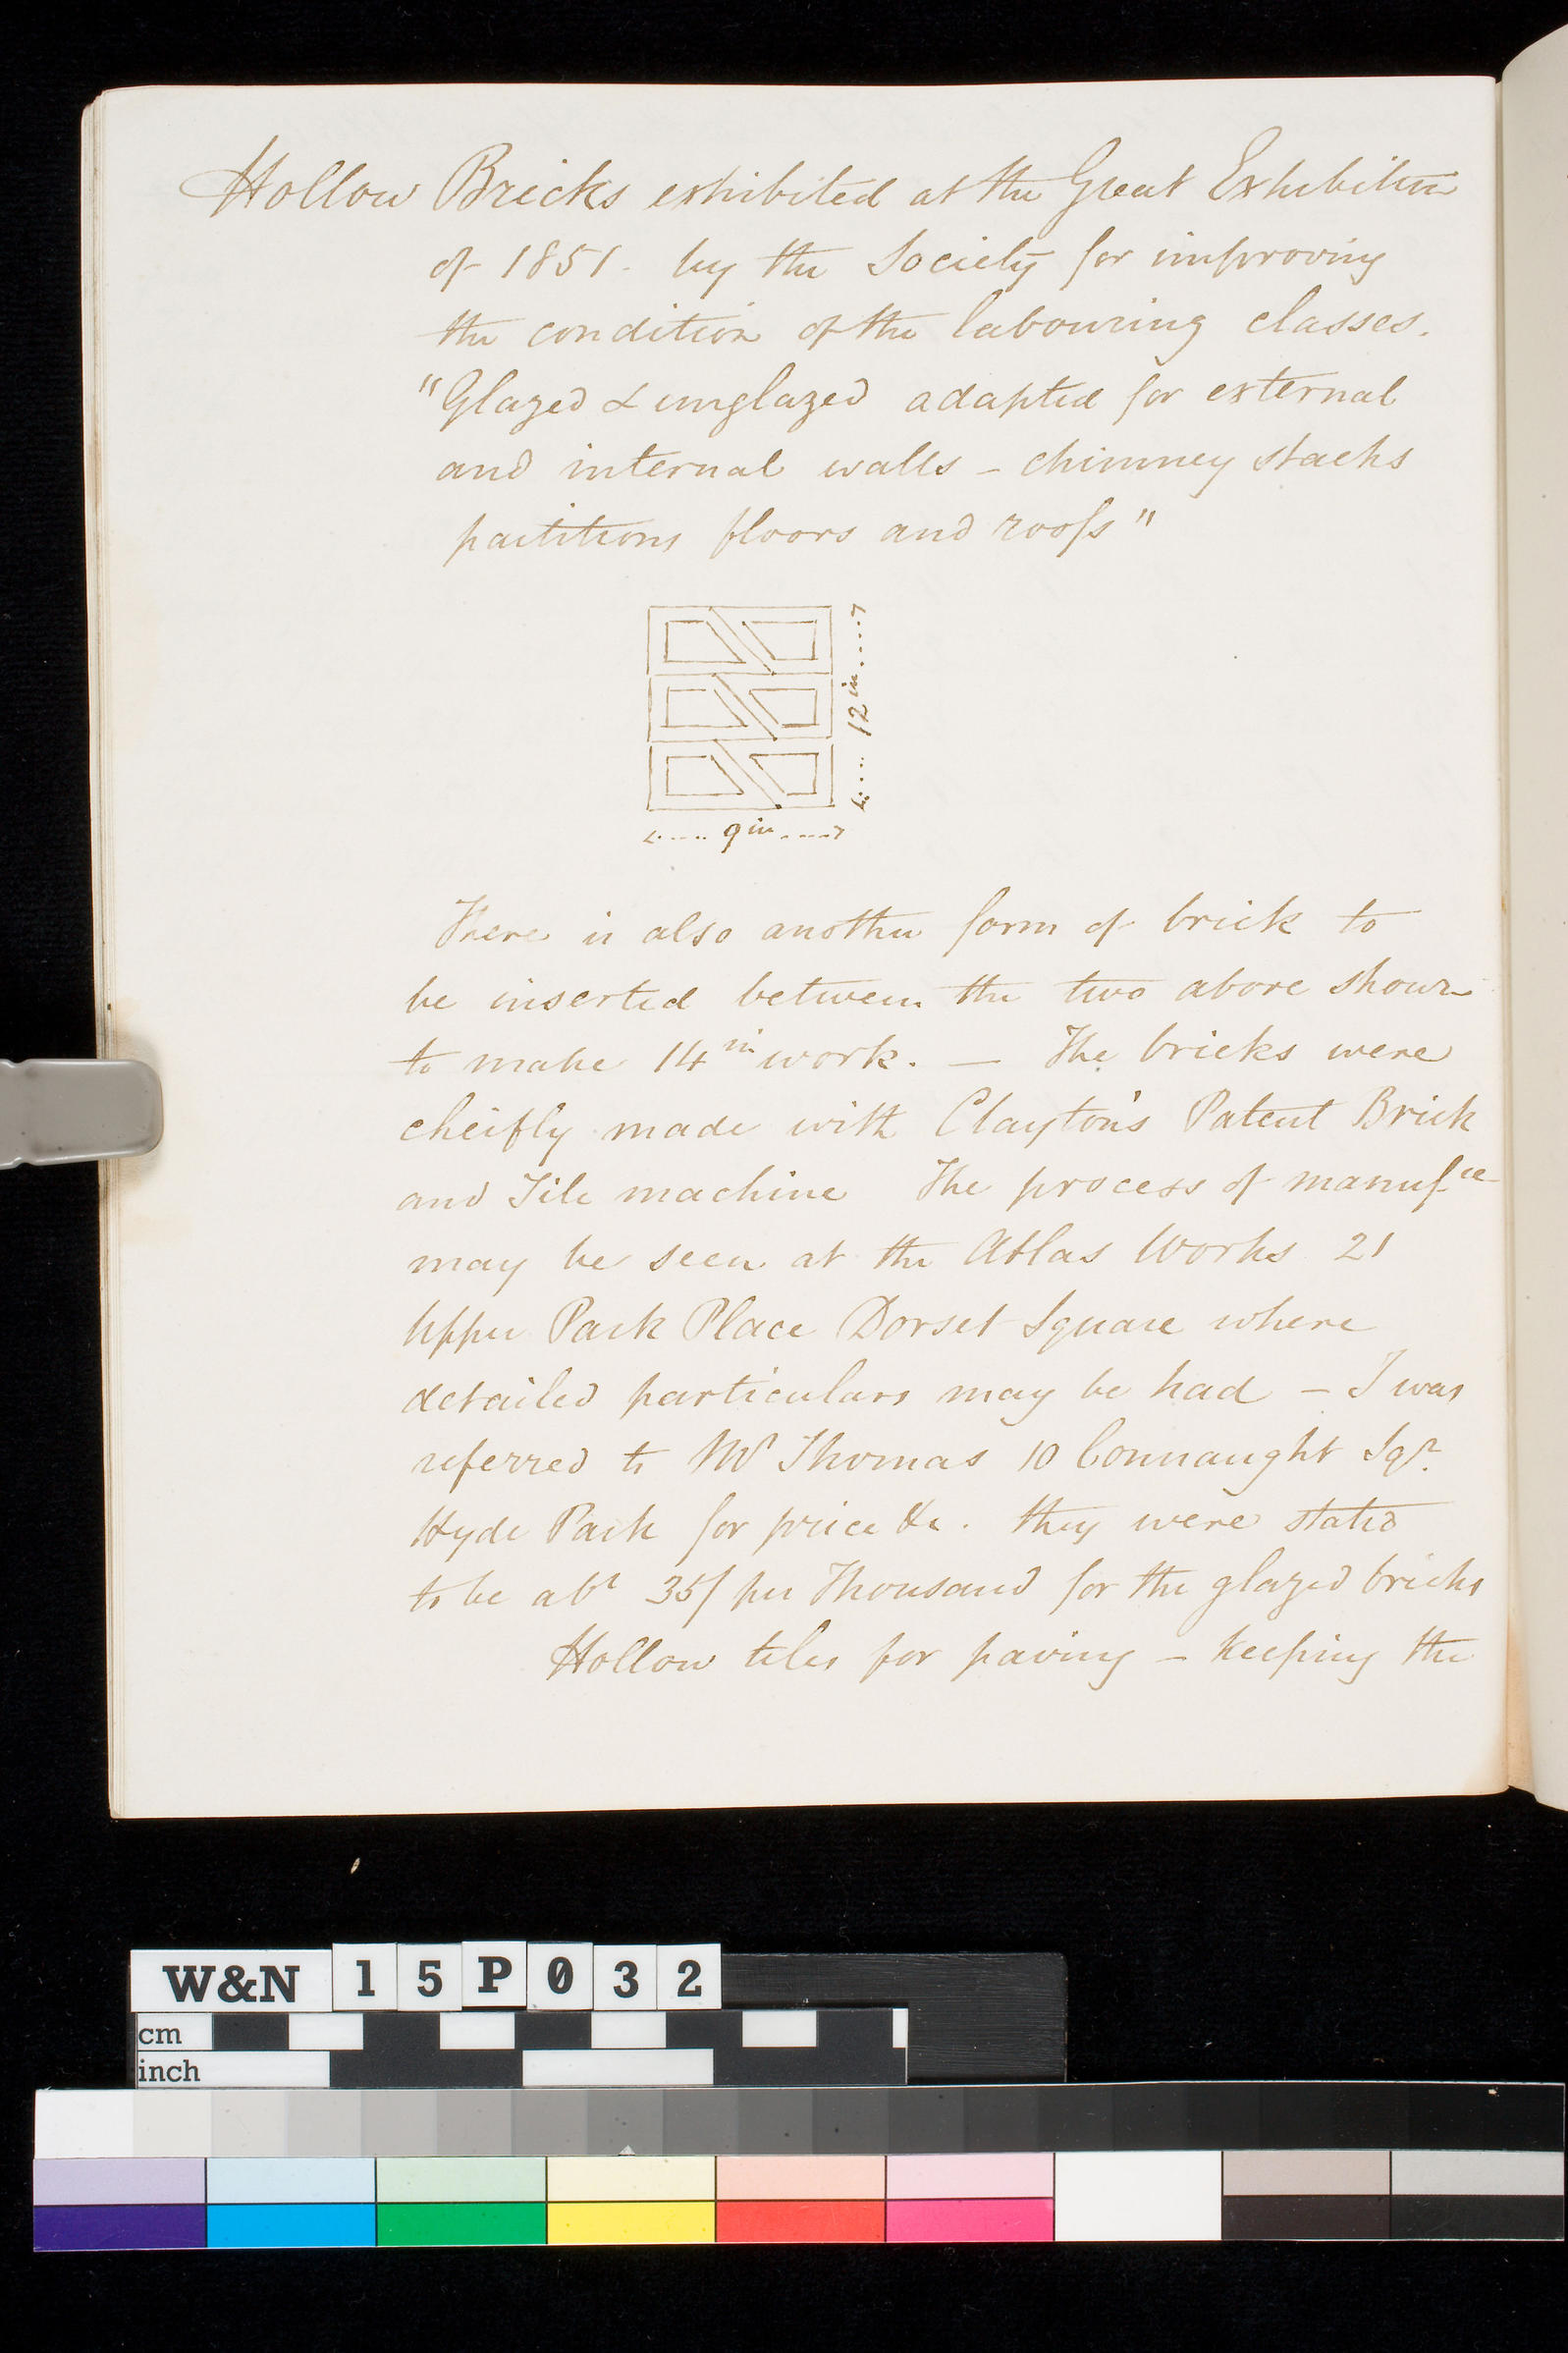 Hollow Bricks exhibited at the Great Exhibition
of 1851. by the Society for improving
the condition of the labouring classes.
"Glazed & unglazed adapted for external
and internal walls – chimney stacks
partitions floors and roofs"
12 in
9 in
There is also another form of brick to
be inserted between the two above shown
to make 14 in work. — The bricks were
cheifly made with Clayton's Patent Brick
and Tile machine The process of manufce
may be seen at the Atlas Works 21
Upper Park Place Dorset Square where
detailed particulars may be had – I was
referred to Mr Thomas 10 Connaught Sqr.
Hyde Park for price &c. they were stated
to be abt 35/ per Thousand for the glazed bricks
Hollow tiles for paving – keeping the
W&N 15P032
cm
inch